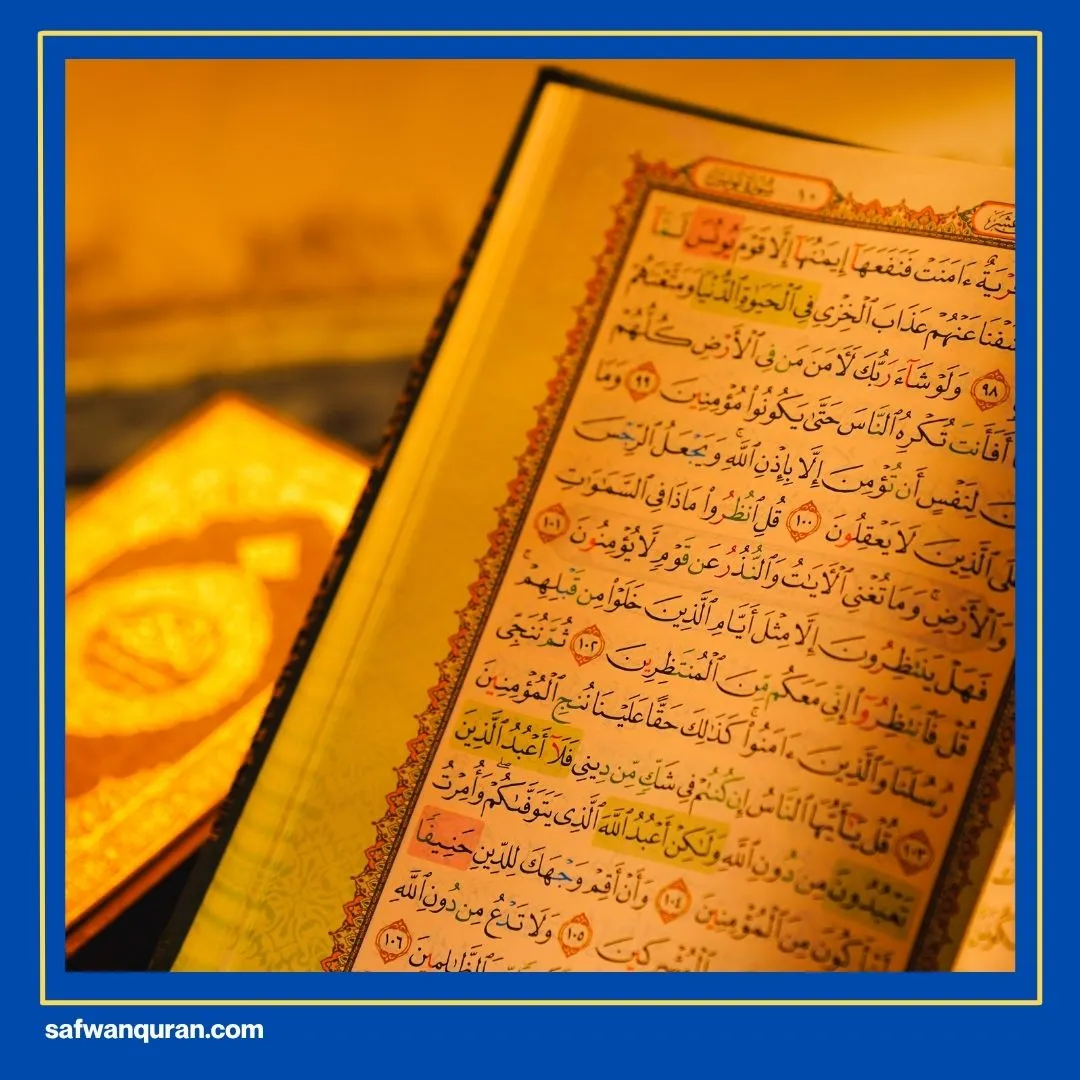 سورة يونس ١٠
قرية ءامنت فنفعها إيمنها إلا قوم يونس لما
عنهم عذاب الخزي في الحيوة الدنيا ومتعنهم
٩٨ ولو شاء ربك لأمن من في الأرض كلهم
أفأنت تكره الناس حتى يكونوا مؤمنين ٩٩ وما
لنفس أن تؤمن إلا بإذن الله ويجعل الرجس
الذين لا يعقلون ١٠٠ قل انظروا ماذا في السموت
والأرض وما تغني الأيت والنذر عن قوم لا يؤمنون ١٠١
فهل ينتظرون إلا مثل أيام الذين خلوا من قبلهم
قل فانتظروا إني معكم من المنتظرين ١٠٢ ثم ننجي
رسلنا والذين ءامنوا كذلك حقا علينا ننج المؤمنين
١٠٣ قل يأيها الناس إن كنتم في شك من ديني فلا أعبد الذين
تعبدون من دون الله ولكن أعبد الله الذي يتوفىكم وأمرت
أن أكون من المؤمنين ١٠٤ وأن أقم وجهك للدين حنيفا
المشركين ١٠٥ ولا تدع من دون الله
الظلمين ١٠٦
safwanquran.com